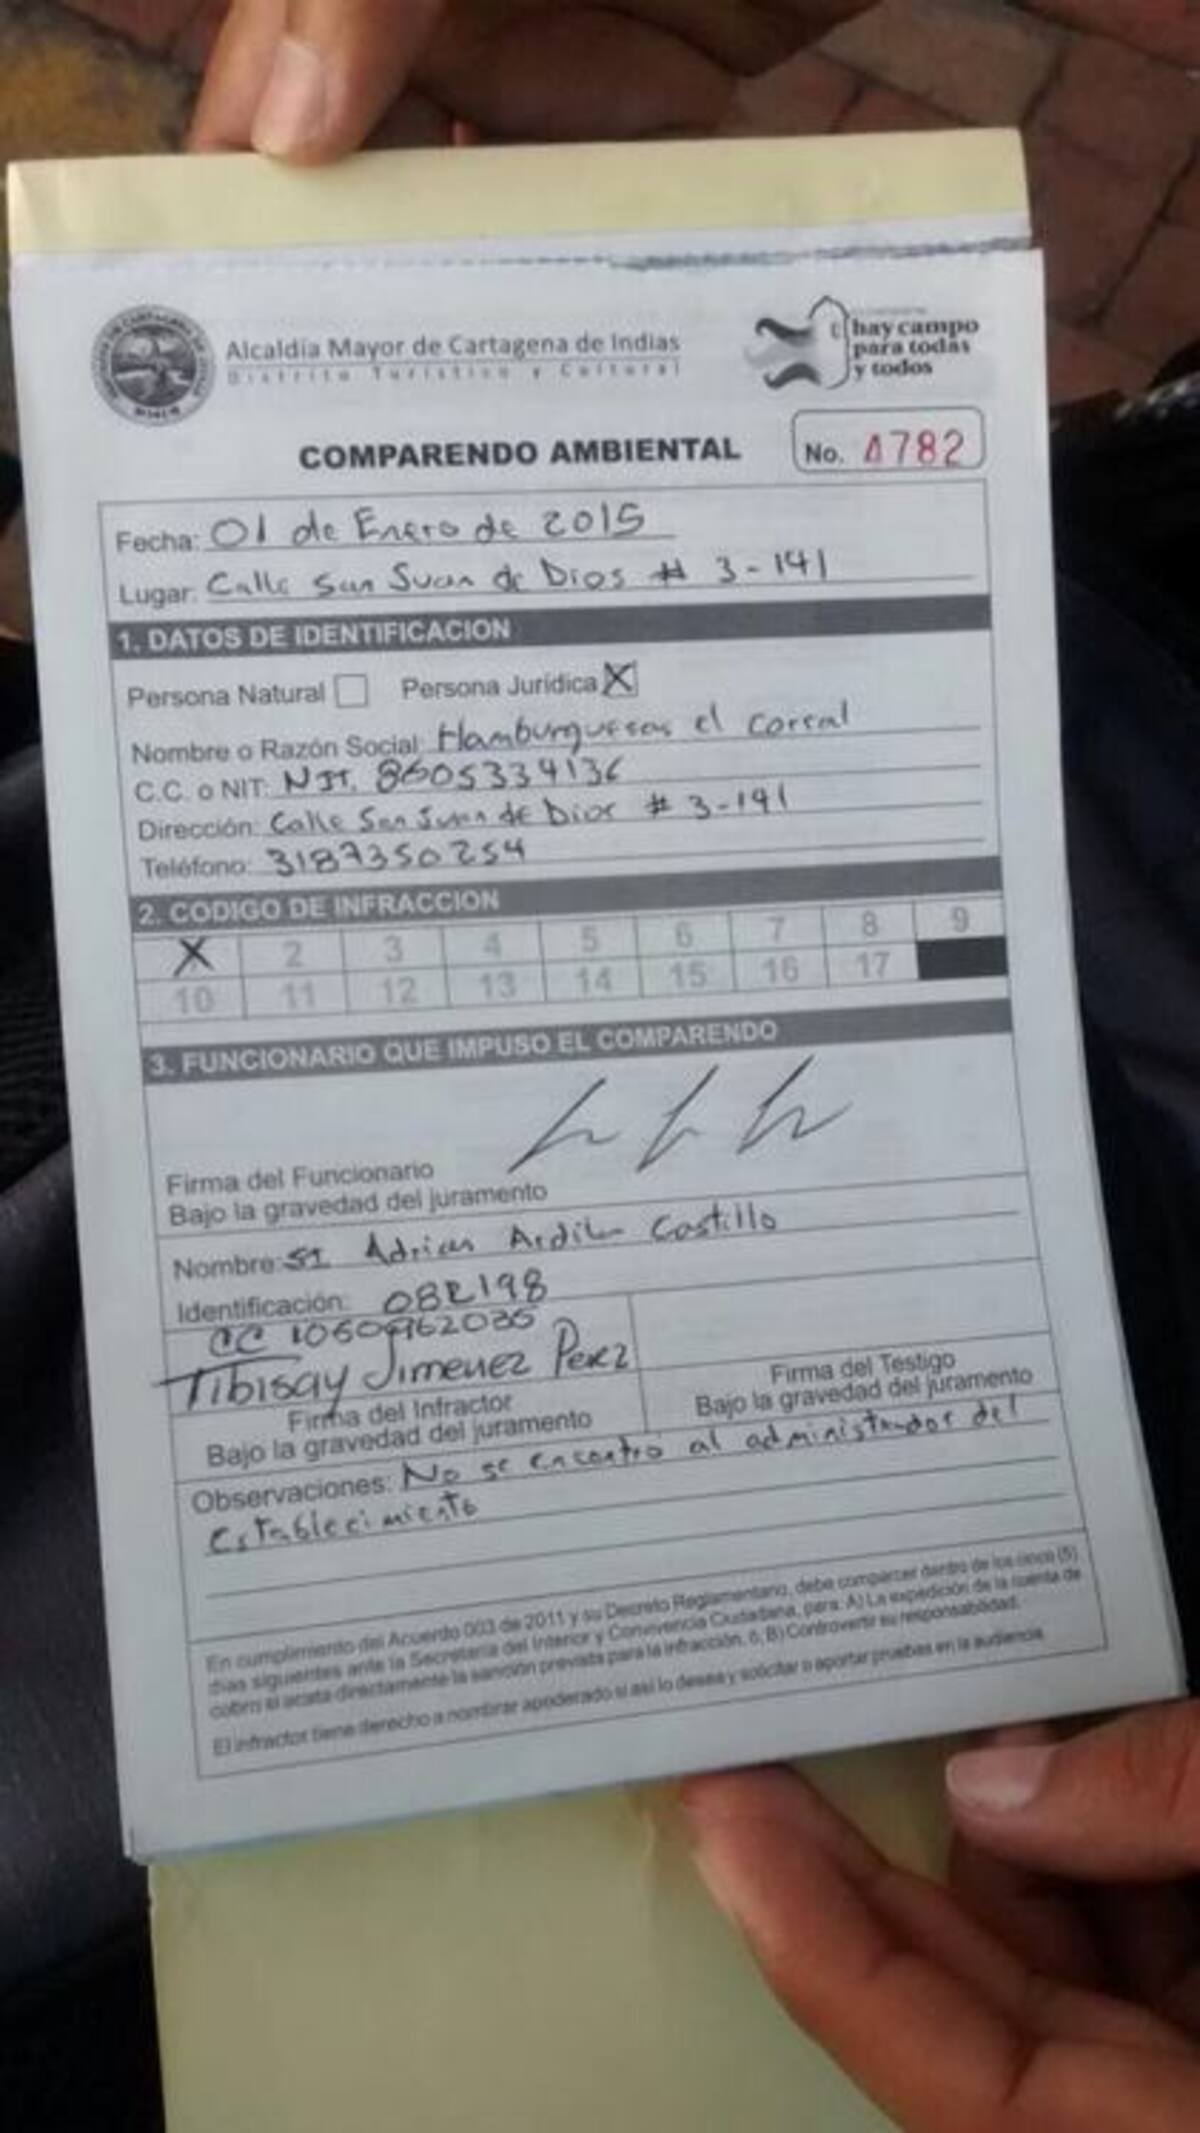 Alcaldía Mayor de Cartagena de Indias
Distrito Turístico y Cultural
hay campo
para todas
y todos
COMPARENDO AMBIENTAL
No. 4782
Fecha: 01 de Enero de 2015
Lugar: Calle San Juan de Dios # 3-141
1. DATOS DE IDENTIFICACION
Persona Natural Persona Jurídica X
Nombre o Razón Social: Hamburguesas el corral
C.C. o NIT: NIT. 8605334136
Dirección: Calle San Juan de Dios # 3-141
Teléfono: 3187350254
2. CODIGO DE INFRACCION
X 2 3 4 5 6 7 8 9
10 11 12 13 14 15 16 17
3. FUNCIONARIO QUE IMPUSO EL COMPARENDO
Firma del Funcionario
Bajo la gravedad del juramento
Nombre: SI Adrian Ardila Castillo
Identificación: 08R198
CC
Tibisay Jimenez Perez
Firma del Infractor
Bajo la gravedad del juramento
Firma del Testigo
Bajo la gravedad del juramento
Observaciones: No se encontró al administrador del
Establecimiento
En cumplimiento del Acuerdo 003 de 2011 y su Decreto Reglamentario, debe comparecer dentro de los cinco (5)
dias siguientes ante la Secretaría del Interior y Convivencia Ciudadana, para: A) La expedición de la cuenta de
cobro si acata directamente la sanción prevista para la infracción, ó; B) Controvertir su responsabilidad.
El infractor tiene derecho a nombrar apoderado si así lo desea y solicitar o aportar pruebas en la audiencia